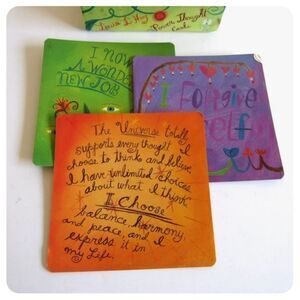 Louise L. Hay
Power Thought
Cards
I NOW
A WONDE
NEW JOB
I Forgive
The Universe totally
supports every thought I
choose to think and believe.
I have unlimited choices
about what I think.
I Choose
balance, harmony,
and peace, and I
express it in
my life.